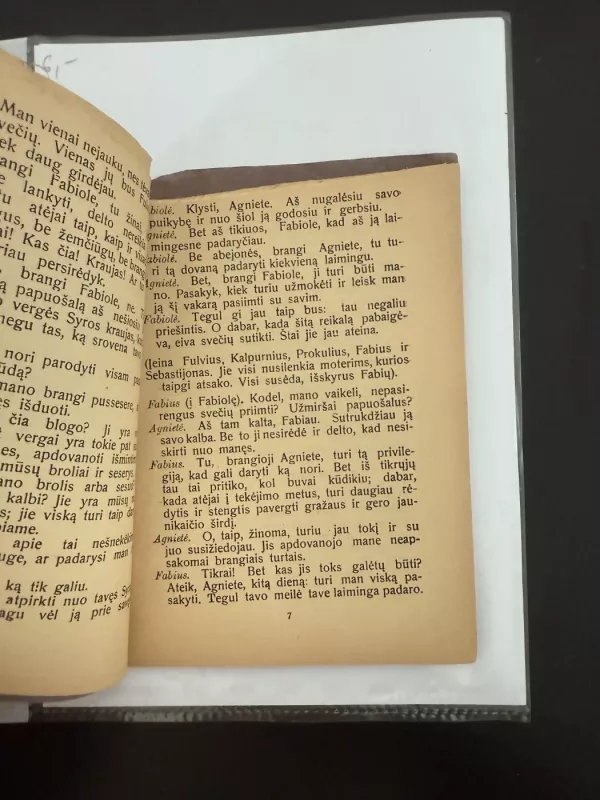 6,-
Man vienai nejauku, nes
svečių. Vienas jų bus
ek daug girdėjau.
angi Fabiole, tu žinai
e lankyti, delto nereikia
tu atėjai taip, kaip ir
gus, be žemčiūgų, be
ai! Kas čia! Kraujas! Ar
riau persirėdyk.
brangi Fabiole, ne.
ą papuošalą aš nešiosiu
vergės Syros kraujas,
negu tas, ką srovena
nori parodyti visam
ūdą?
mano brangi pussesere,
ęs išduoti.
čia blogo? Ji yra
vergai yra tokie pat
nes, apdovanoti išmintim
mūsų broliai ir seserys.
mano brolis arba
kalbi? Jie yra mūsų
s; jie viską turi taip
piame.
apie tai nešnekėk
uge, ar padarysi man
ką tik galiu.
atpirkti nuo tavęs
agu vėl ją prie
abiolė. Klysti, Agniete. Aš nugalėsiu savo
puikybę ir nuo šiol ją godosiu ir gerbsiu.
gnietė. Bet aš tikiuos, Fabiole, kad aš ją lai-
mingesne padaryčiau.
abiolė. Be abejonės, brangi Agniete, tu tu-
ri tą dovaną padaryti kiekvieną laimingu.
Agnietė. Bet, brangi Fabiole, ji turi būti ma-
no. Pasakyk, kiek turiu užmokėti ir leisk man
ją šį vakarą pasiimti su savim.
Fabiolė. Tegul gi jau taip bus: tau negaliu
priešintis. O dabar, kada šitą reikalą pabaigė-
va, eiva svečių sutikti. Štai jie jau ateina.
(Įeina Fulvius, Kalpurnius, Prokulius, Fabius ir
Sebastijonas. Jie visi nusilenkia moterims, kurios
taipgi atsako. Visi susėda, išskyrus Fabių).
Fabius (į Fabiolę). Kodel, mano vaikeli, nepasi-
rengus svečių priimti? Užmiršai papuošalus?
Agnietė. Aš tam kalta, Fabiau. Sutrukdžiau ją
savo kalba. Be to ji nesirėdė ir delto, kad nesi-
skirti nuo manęs.
Fabius. Tu, brangioji Agniete, turi tą privile-
giją, kad gali daryti ką nori. Bet iš tikrųjų
tau tai pritiko, kol buvai kūdikiu; dabar,
kada atėjai į tekėjimo metus, turi daugiau rė-
dytis ir stengtis pavergti gražų ir gero jau-
nikaičio širdį.
Agnietė. O, taip, žinoma, turiu jau tokį ir su
juo susižiedojau. Jis apdovanojo mane neap-
sakomai brangiais turtais.
Fabius. Tikrai! Bet kas jis toks galėtų būti?
Ateik, Agniete, kitą dieną: turi man viską pa-
sakyti. Tegul tavo meilė tave laiminga padaro.
7